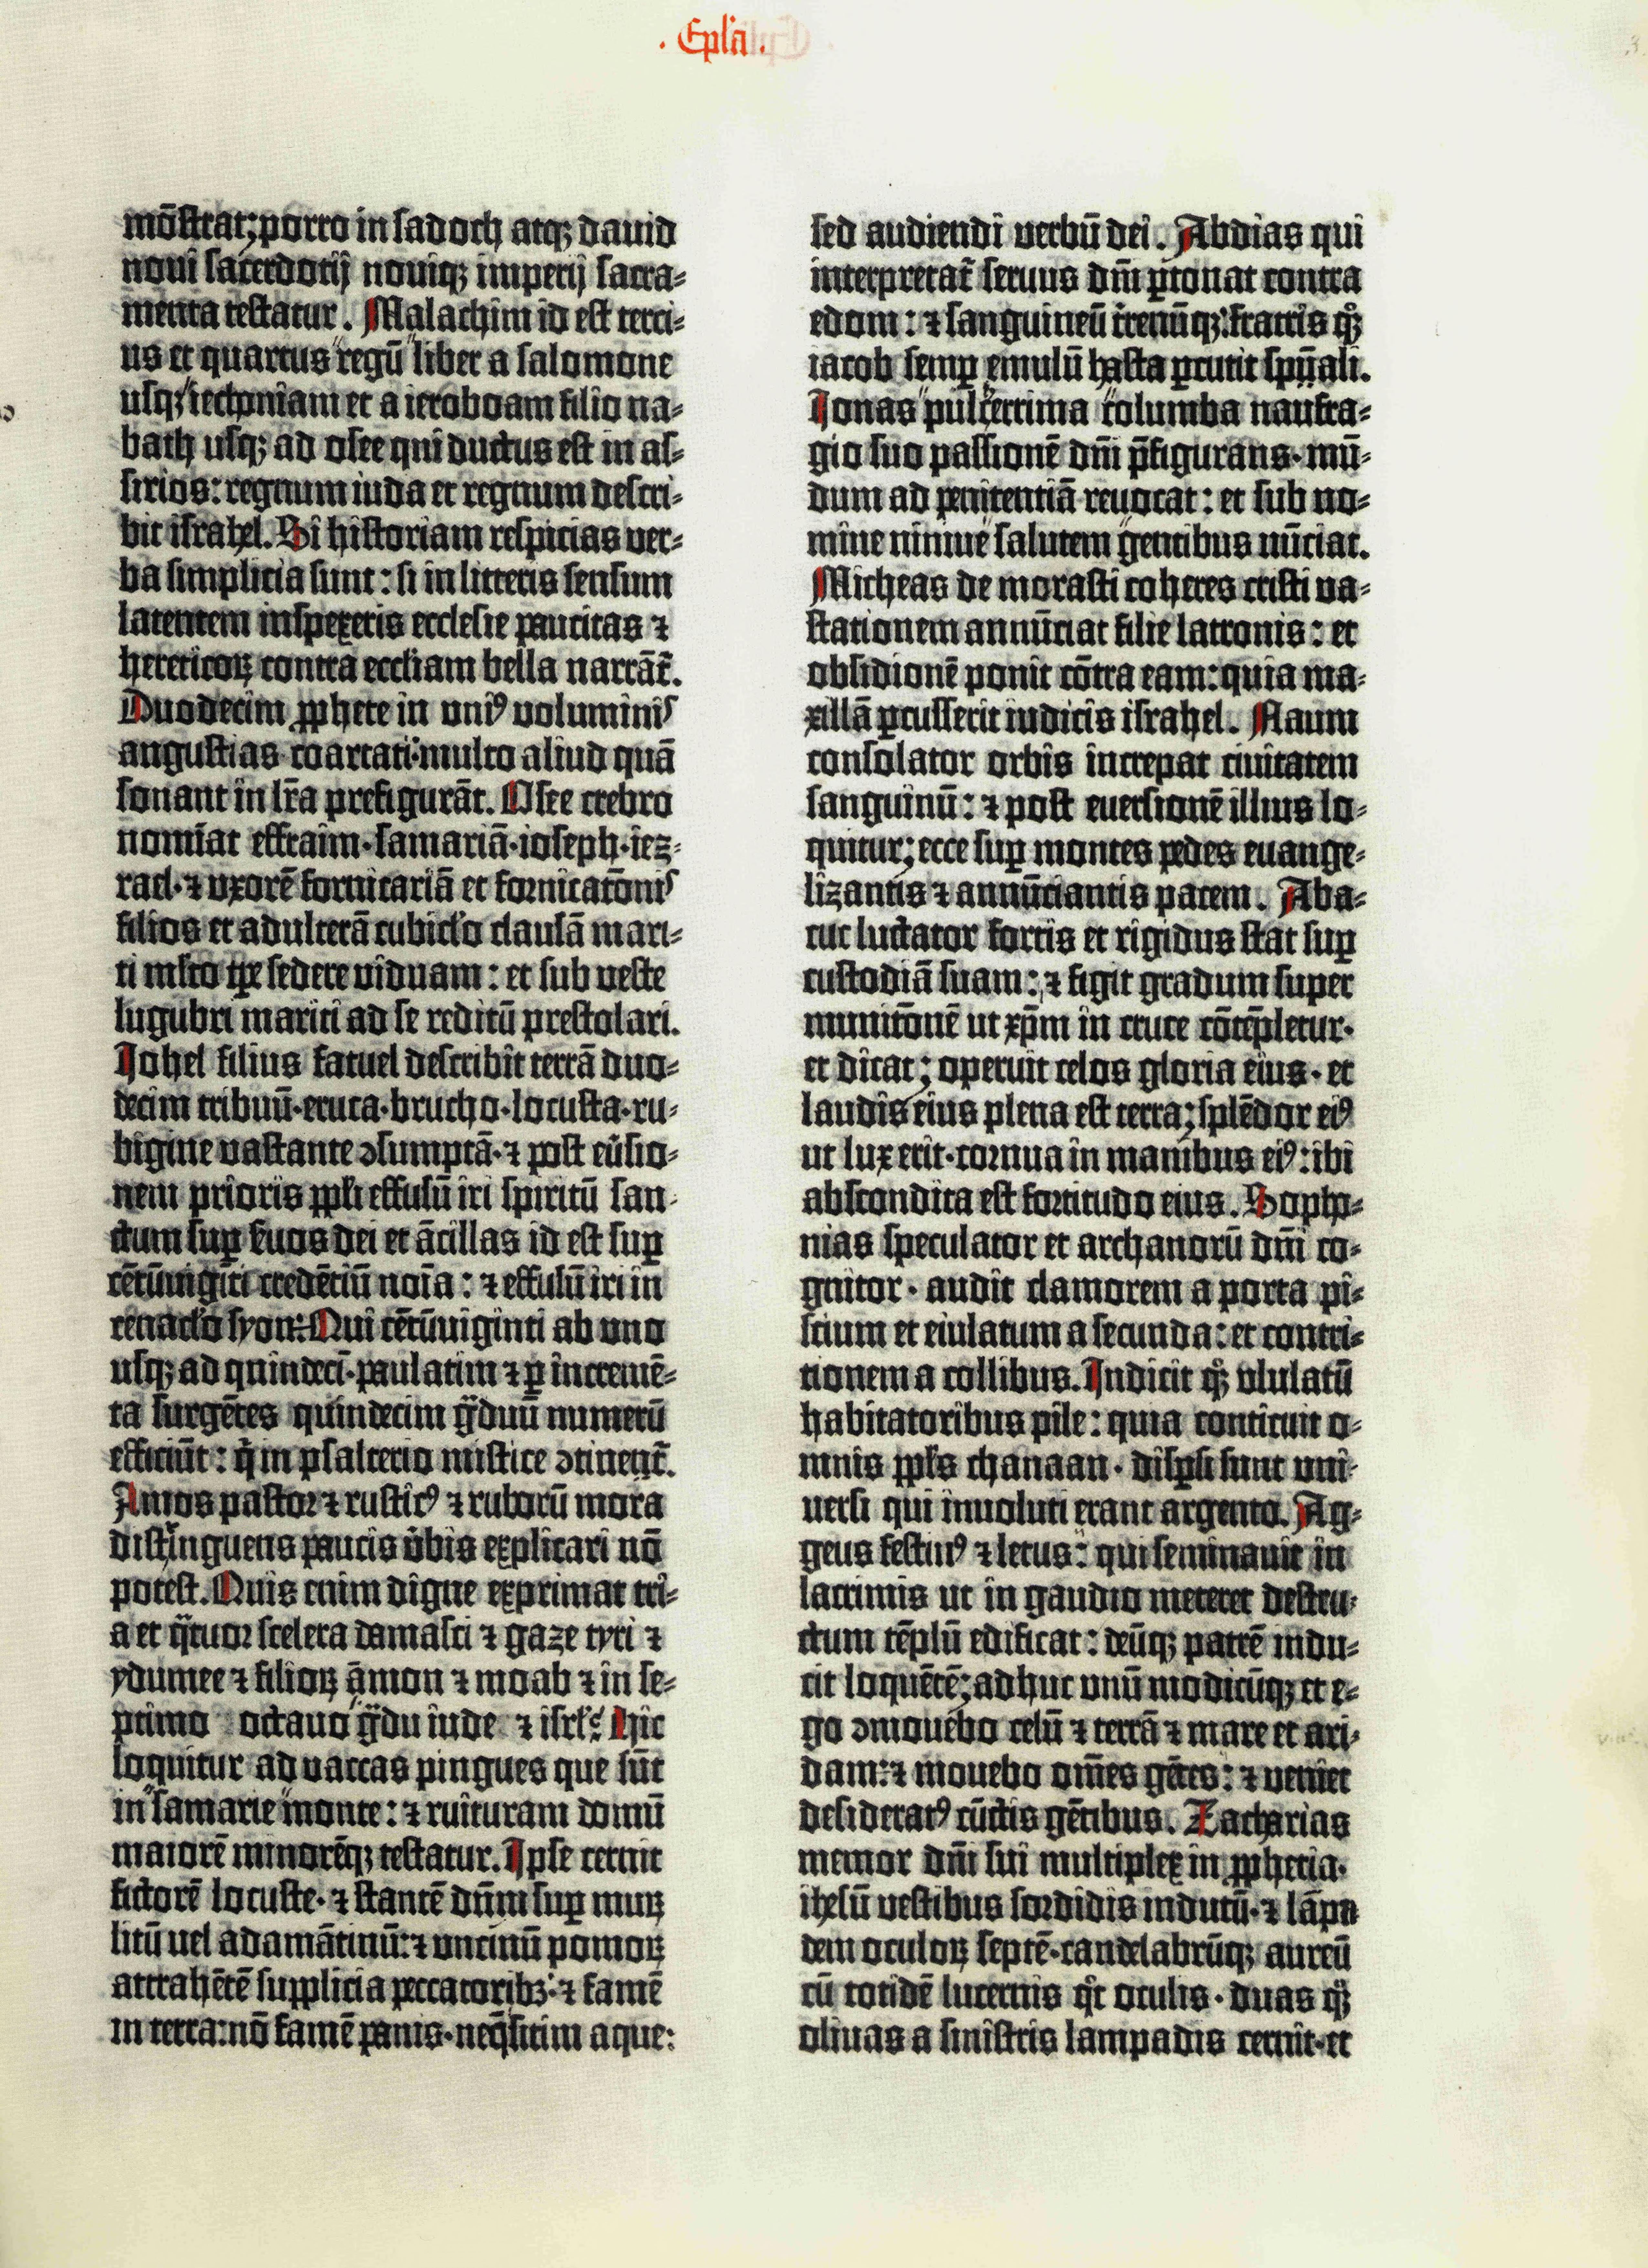 . Epl̄a .
mōstrat; porro in sadoch atqꝫ dauid
noui sacerdotij nouiqꝫ imperij sacra⸗
menta testatur. Malachim id est terci⸗
us et quartus regū liber a salomone
usqꝫ iechoniam et a ieroboam filio na⸗
bath usqꝫ ad osee qui ductus est in as⸗
sirios: regnum iuda et regnum descri⸗
bit israhel. Si historiam respicias ver⸗
ba simplicia sunt: si in litteris sensum
latentem inspexeris ecclesie paucitas ⁊
hereticoꝝ contra eccliam bella narrāt̄.
Duodecim ꝓphete in uniꝰ voluminis
angustias coartati: multo aliud quā
sonant in lr̄a prefigurāt. Osee crebro
nomīat effraim·samariā·ioseph·iez⸗
rael·⁊ uxorē fornicariā et fornicatōnis
filios et adulterā cubicl'o clausā mari⸗
ti mlto tꝑe sedere viduam: et sub veste
lugubri mariti ad se reditū prestolari.
Johel filius fatuel describit terrā duo⸗
decim tribuū·eruca·brucho·locusta·ru⸗
bigine vastante ɔsumptā·⁊ post eu̓sio⸗
nem prioris ppl̓i effusū iri spiritū san⸗
ctum suꝑ ẜuos dei et ācillas id est suꝑ
cētūuigīti credētiū noīa: ⁊ effusū iri in
cenacl'o syon: Qui cētūuiginti ab uno
usqꝫ ad quindecī·paulatim ⁊ ꝑ incremē⸗
ta surgētes quindecim gͣduū numerū
efficiūt: q̄ in psalterio mistice ɔtinent̄.
Amos pastor ⁊ rusticꝰ ⁊ ruborū mora
distīnguens paucis v̓bis explicari nō
potest. Quis enim digne exprimat tri⸗
a et qͣtuor scelera damasci ⁊ gaze tyri ⁊
ydumee ⁊ filioꝝ āmon ⁊ moab ⁊ in se⸗
ptimo octauo gͣdu iude ⁊ isrl̓: Hic
loquitur ad vaccas pingues que sūt
in samarie monte: ⁊ ruituram domū
maiorē minorēqꝫ testatur. Ipse cernit
fictorē locuste·⁊ stantē dn̄m suꝑ muꝝ
litū vel adamātinū: ⁊ uncinū pomoꝝ
attrahētē supplicia peccatoribꝫ: ⁊ famē
in terra: nō famē panis·neqꝫ sitim aque:
sed audiendi verbū dei. Abdias qui
interpretat̄ seruus dn̄i ꝑtonat contra
edom: ⁊ sanguineū t̓renūqꝫ: fratris qͦꝫ
iacob semꝑ emulū hasta ꝑcutit spūali.
Jonas pulcerrima columba naufra⸗
gio suo passionē dn̄i p̄figurans·mū⸗
dum ad penitentiā reuocat: et sub no⸗
mine niniue salutem gentibus nūciat.
Micheas de morasti coheres cristi va⸗
stationem annūciat filie latronis: et
obsidionē ponit cōtra eam: quia ma⸗
xillā ꝑcusserit iudicis israhel. Naum
consolator orbis increpat ciuitatem
sanguinū: ⁊ post euersionē illius lo⸗
quitur; ecce suꝑ montes pedes euange⸗
lizantis ⁊ annūciantis pacem. Aba⸗
cuc luctator fortis et rigidus stat suꝑ
custodiā suam: ⁊ figit gradum super
munitōnē ut xp̄m in cruce cōtēpletur·
et dicat; operuit celos gloria eius·et
laudis eius plena est terra; splēdor eiꝰ
ut lux erit·cornua in manibus eiꝰ: ibi
abscondita est fortitudo eius. Sopho⸗
nias speculator et archanorū dn̄i co⸗
gnitor·audit clamorem a porta pi⸗
scium et eiulatum a secunda: et contri⸗
tionem a collibus. Indicit qͦꝫ ululatū
habitatoribus pile: quia conticuit o⸗
mnis ppl̓s chanaan·disꝑsi sunt uni⸗
uersi qui inuoluti erant argento. Ag⸗
geus festiuꝰ ⁊ letus: qui seminauit in
lacrimis ut in gaudio meteret destru⸗
ctum tēplū edificat: deūqꝫ patrē indu⸗
cit loquētē; adhuc unū modicūqꝫ et e⸗
go ɔmouebo celū ⁊ terrā ⁊ mare et ari⸗
dam: ⁊ mouebo om̄es gētes: ⁊ veniet
desideratꝰ cūctis gētibus. Zacharias
memor dn̄i sui multiplex in ꝓphetia·
ihesū vestibus sordidis indutū·⁊ lāpa
dem oculoꝝ septē·candelabrūqꝫ aureū
cū totidē lucernis qͦt oculis·duas qͦꝫ
oliuas a sinistris lampadis cernit·et